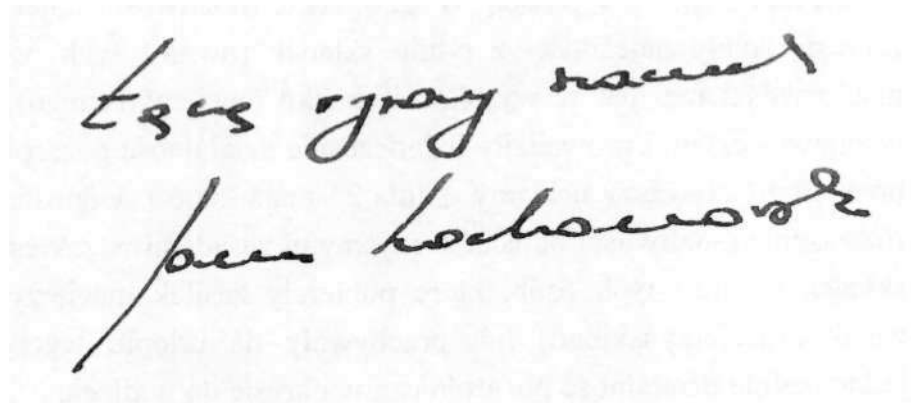 Łączę wyrazy szacunku
Jan Kochanowski